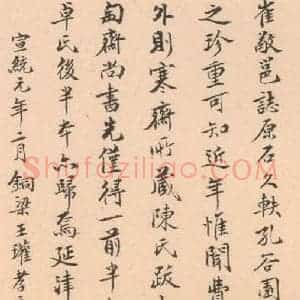 崔敬邕誌原石久軼孔谷園
之珍重可知近年惟聞費
外則寒齋所藏陳氏跋
匋齋尚書先僅得一前半
卓氏後半本亦歸焉延津
宣統元年二月銅梁王瓘孝
Shufaziliao.com